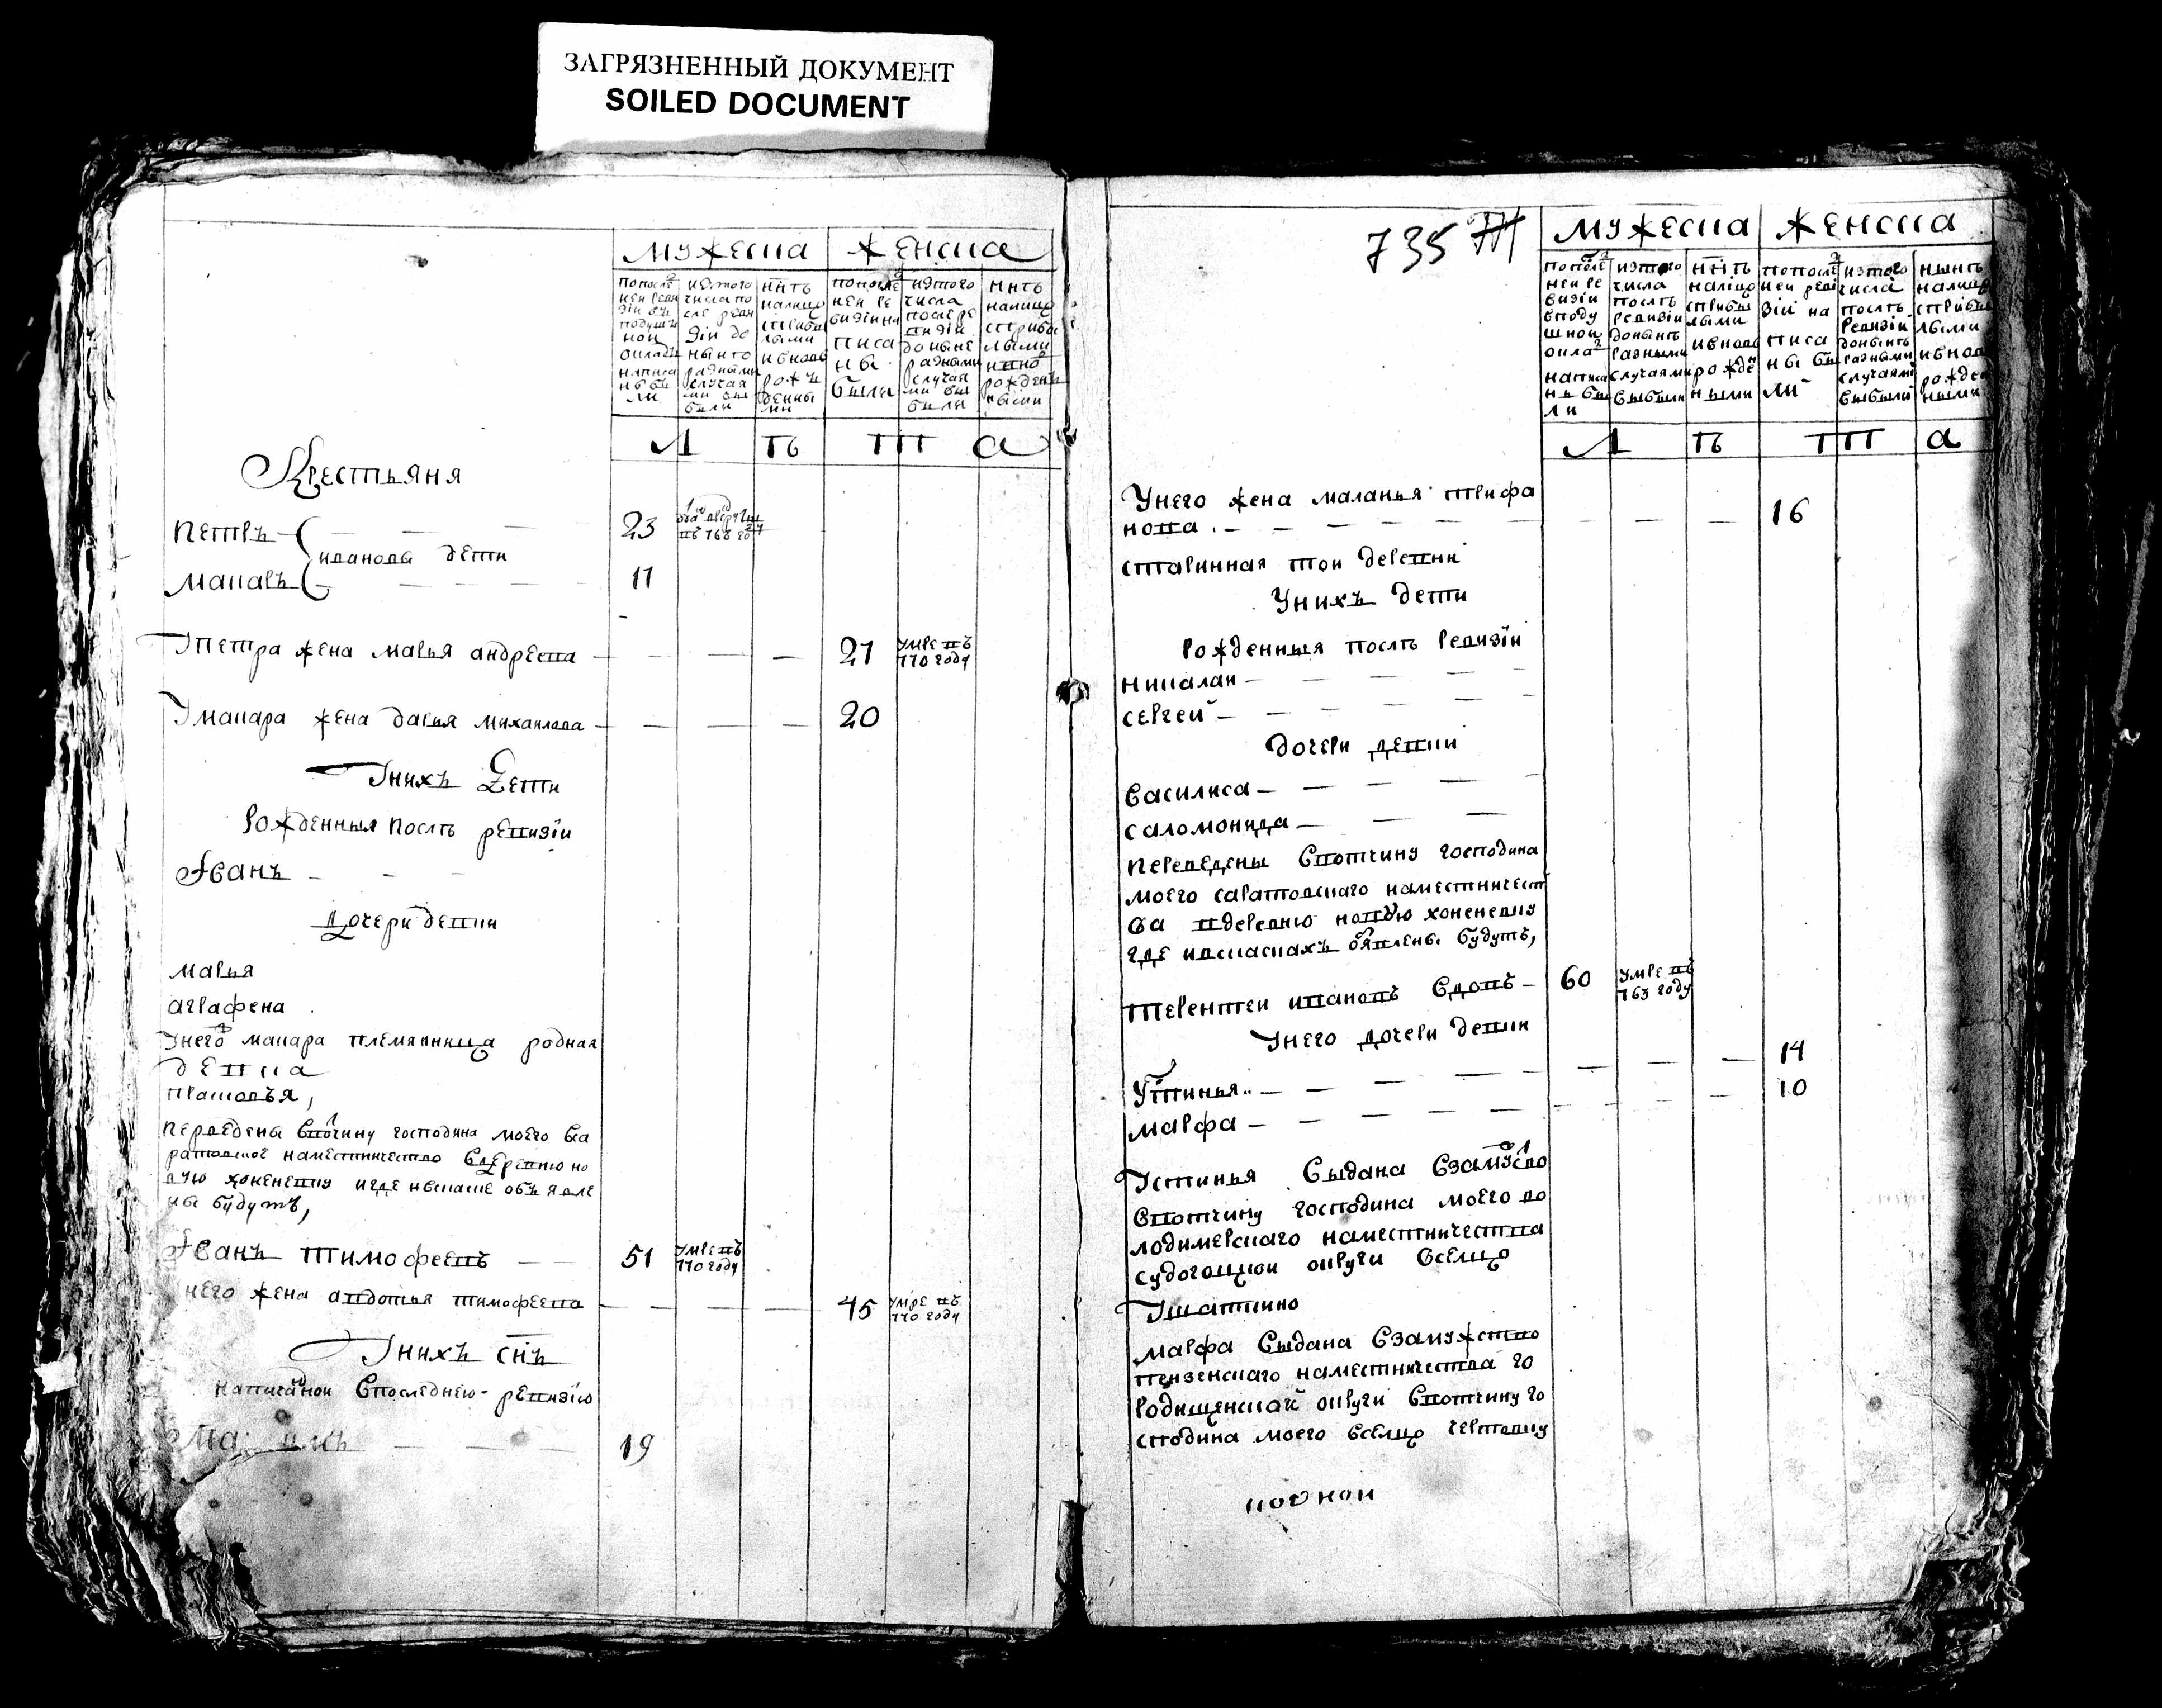 ЗАГРЯЗНЕННЫЙ ДОКУМЕНТ
SOILED DOCUMENT
мужеска
женска
попосле
ней реви
зіи въ
подушъ
ной
окладъ
написа
ны бы
ли
изтого
числа по
сле реви
зіи до
ныне
разными
случая
ми вы
были
ннѣ
налицо
сприбы
лыми
ивновь
рожъ
денны
ми
попосле
ней ре
визіи на
писа
ны
были
изтого
числа
после ре
визіи
доныне
разными
случая
ми вы
были
ннѣ
налицо
сприбы
лыми
ивно
рожден
ными
л ѣ т а
Крестьяня
Петръ
ивановы дети
Макаръ
23
17
Упетра жена марья андреева
21
умре въ
770 году
Умакара жена дарья михаилова
20
Униxъ Дети
рожденныя послѣ ревизіи
Иванъ
дочери девки
марья
аграфена
Унего макара племянница родная
девка
прасковъя,
переведены вотчину господина моего са
ратовское наместничество вдеревню но
вую хоненевку игде нынѣ объявле
ны будутъ,
Иванъ тимофеевъ
51
умре въ
770 году
него жена авдотья тимофеева
45
умре въ
770 году
Унихъ снъ
написанной впоследнею ревизію
19
735
мужеска
женска
попосле
ней ре
визіи
вподу
шном
окла
написа
ны бы
ли
изтого
числа
послѣ
ревизіи
донынѣ
разными
случаями
выбыли
ннѣ
наліцо
сприбы
лыми
ивновь
рожде
ными
попосле
ней реві
зіи на
писа
ны бы
ли
изтого
числа
послѣ
ревизіи
донынѣ
разными
случаями
выбыли
нынѣ
налицо
сприбы
лыми
ивнов
рожден
ными
л ѣ т а
Унего жена маланья трифа
нова
16
старинная той деревни
Унихъ дети
рожденныя послѣ ревизіи
николаи
сергей
дочери девки
василиса
саломонида
переведены вотчину господина
моего саратовскаго наместничест
ва вдеревню новую хоненевку
где ивсказкахъ объявлены будутъ,
терентеи ивановъ вдовъ
60
умре въ
763 году
Унего дочери девки
14
Устинья
10
марфа
Устинья выдана взамужство
вотчину господина моего во
лодимерскаго наместничества
судогоцкои округи вселцо
Ушаткино
марфа выдана взамужство
пензенскаго наместничества го
родищенской округи вотчину го
сподина моего вселцо чертовку